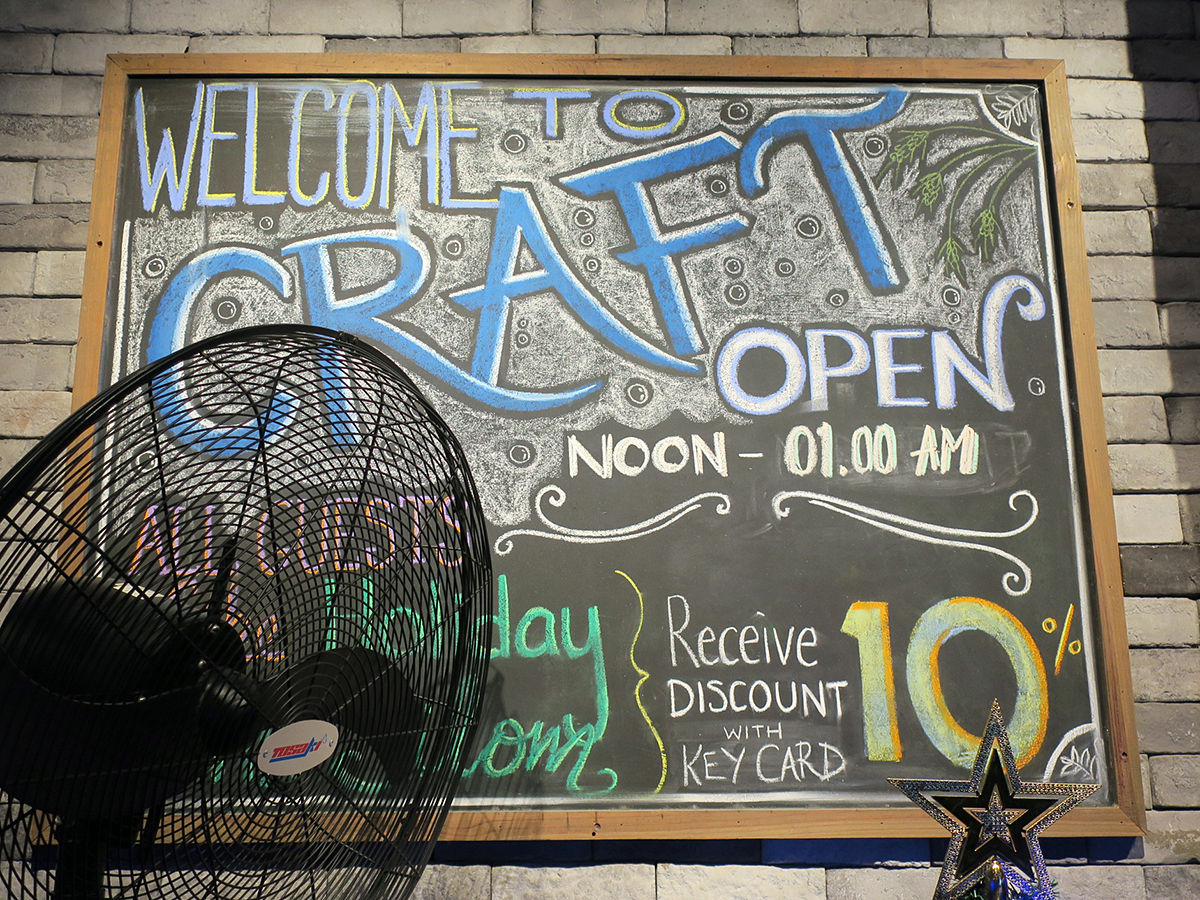 WELCOME TO
CRAFT
OPEN
NOON - 01.00 AM
ALL GUESTS
Holiday
Receive
DISCOUNT
WITH
KEY CARD
10%
TOSAKI